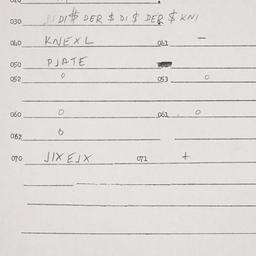 030 DI$ DER $ DI $ DER $ KNI
040 KNEXL 041 —
050 PJATE
052 0 053 0
060 0 061 0
062 0
070 JIXEJX 071 +